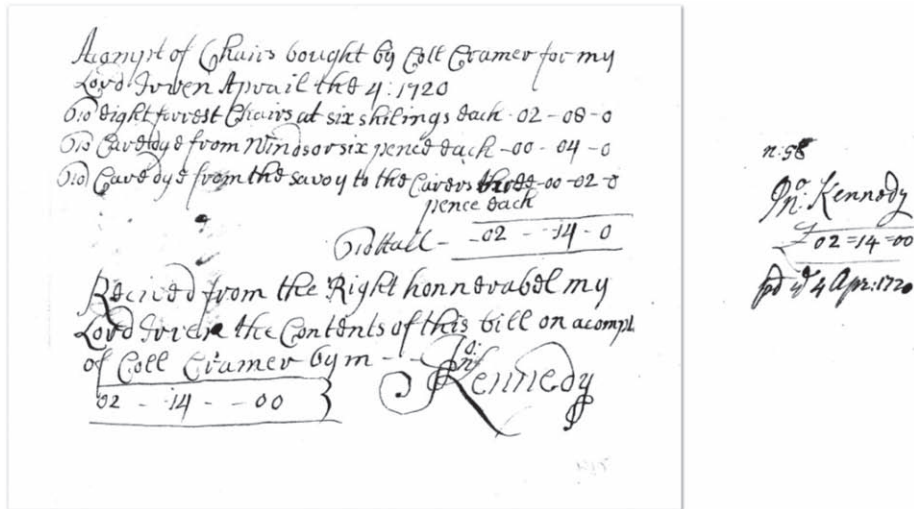 Acompt of Chairs bought by Coll Cramer for my
Lord Irwen Aprail the 4: 1720
eight forrest Chairs at six shilings each - 02 - 08 - 0
Caredge from Windsor six pence each - 00 - 04 - 0
Caredge from the savoy to the Carers three - 00 - 02 - 0
pence each
Tottall - - 02 - 14 - 0
Recived from the Right honnerabel my
Lord Irwen the Contents of this bill on acompt
of Coll Cramer by m - - Jno: Kennedy
02 - 14 - - 00
n: 58
Jno: Kennedy
£ 02 = 14 = 00
pd ye 4 Apr: 1720